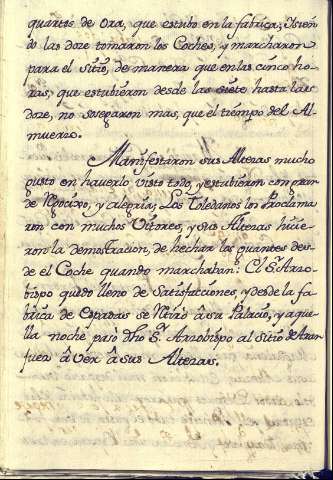 quartos de ora, que estubo en la fabrica; Y sien
do las doze tomaron los Coches, y marcharon
para el Sitio, de manera que en las cinco ho
ras, que estubieron desde las siete hasta las
doze, no sosegaron mas, que el tiempo del Al
muerzo.
Manifestaron sus Altezas mucho
gusto en haverlo visto todo, y estubieron con gran
de regocixo, y alegria; Los Toledanos los Proclama
ron con muchos Vitores, y sus Altezas hicie
ron la demostracion, de hechar los guantes des
de el Coche quando marchaban: El Sr. Arzo
bispo quedo lleno de Satisfacciones, y desde la fa
brica de Espadas se retiró à su Palacio, y aque
lla noche pasó dho Sr. Arzobispo al Sitio de Aran
juez à vèr à sus Altezas.